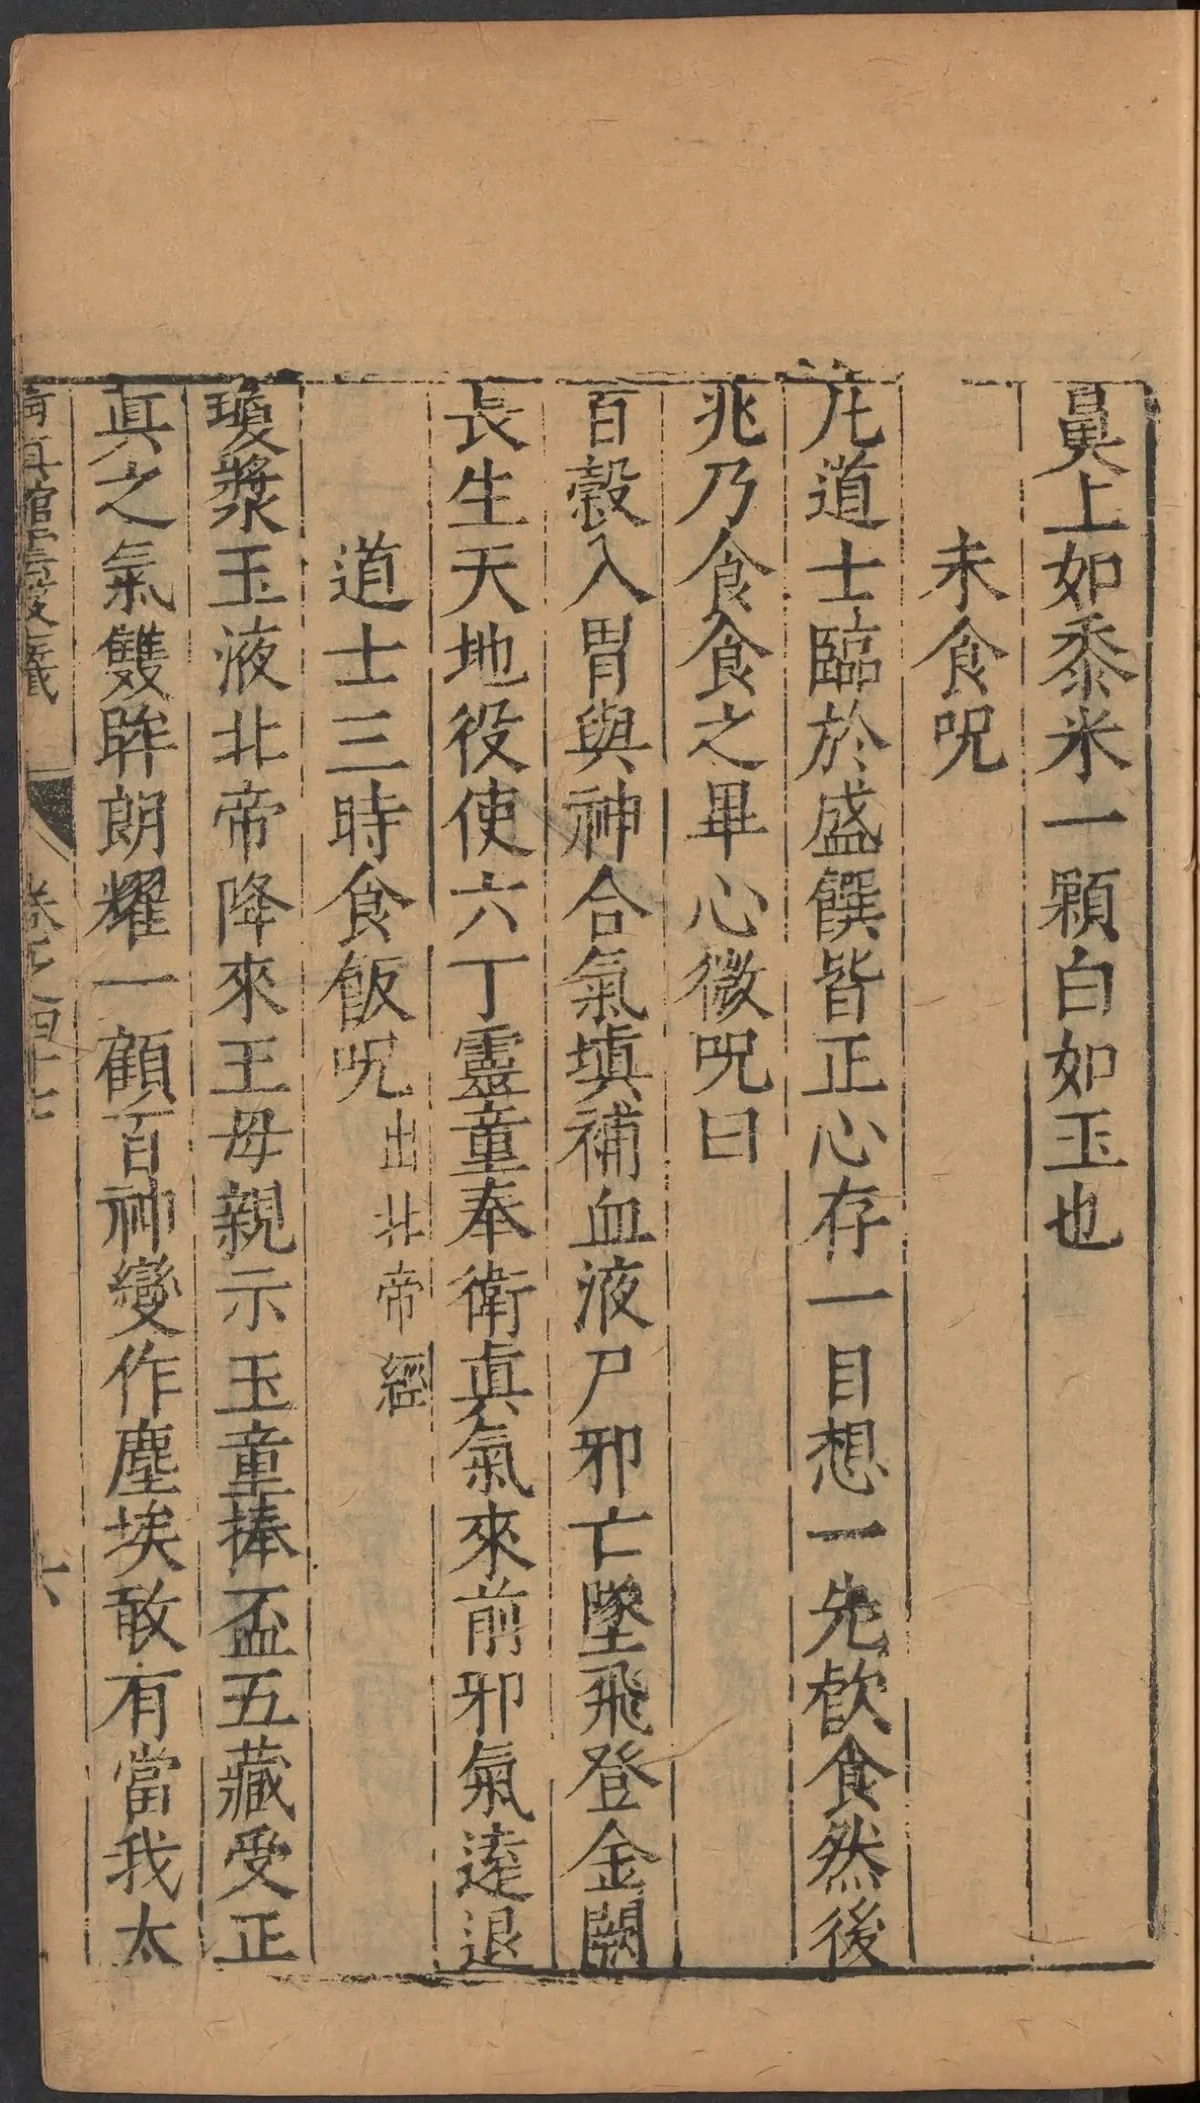 鼻上如黍米一顆白如玉也
未食呪
凡道士臨於盛饌皆正心存一目想一先飲食然後
兆乃食食之畢心微呪曰
百穀入胃與神合氣填補血液尸邪亡墜飛登金闕
長生天地役使六丁靈童奉衛真氣來前邪氣逺退
道士三時食飯呪 出北帝經
瓊漿玉液北帝降來王母親示玉童捧盃五藏受正
真之氣雙眸朗耀一顧百神變作塵埃敢有當我太
六